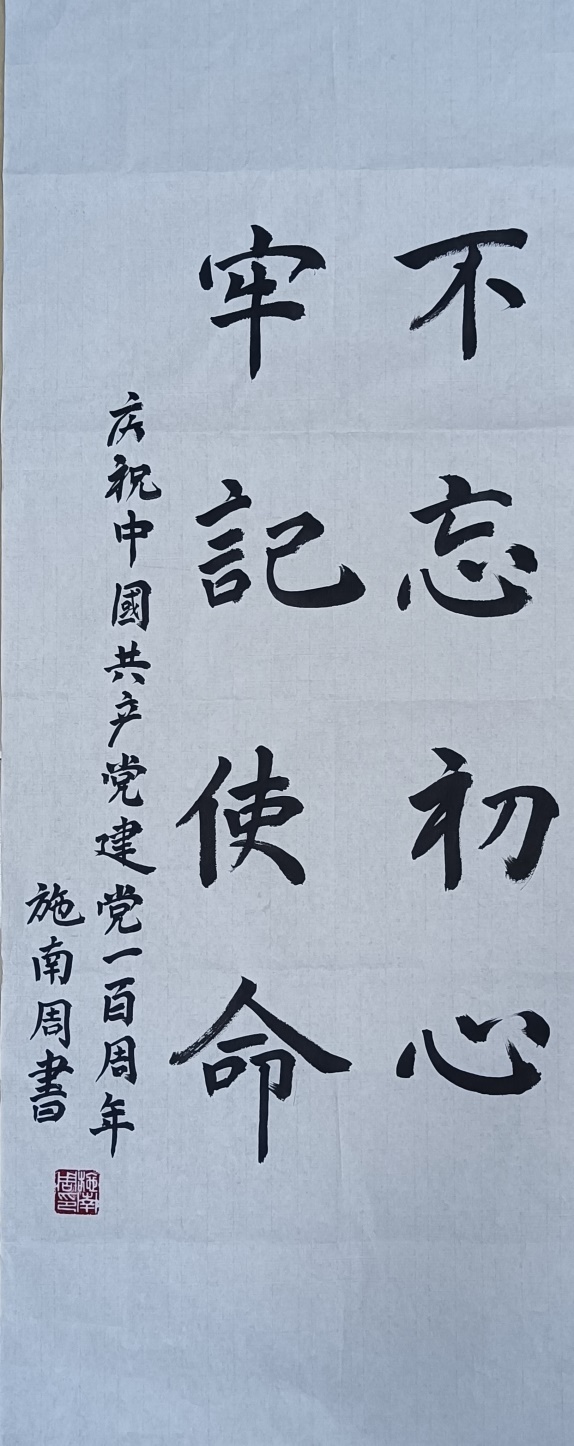 不忘初心
牢記使命
庆祝中國共产党建党一百周年
施南周書
施南周印